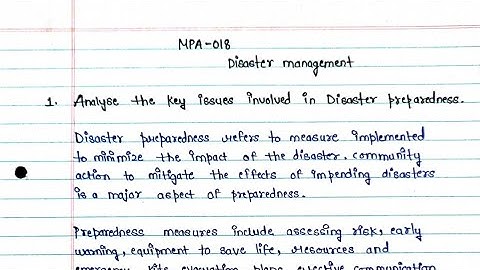 MPA-018
Disaster management
1. Analyse the key issues involved in Disaster preparedness.
Disaster preparedness refers to measure implemented
to minimize the impact of the disaster. community
action to mitigate the effects of impending disasters
is a major aspect of preparedness.
Preparedness measures include assessing risk, early
warning, equipment to save life, resources and
emergency kits evacuation plans effective communication